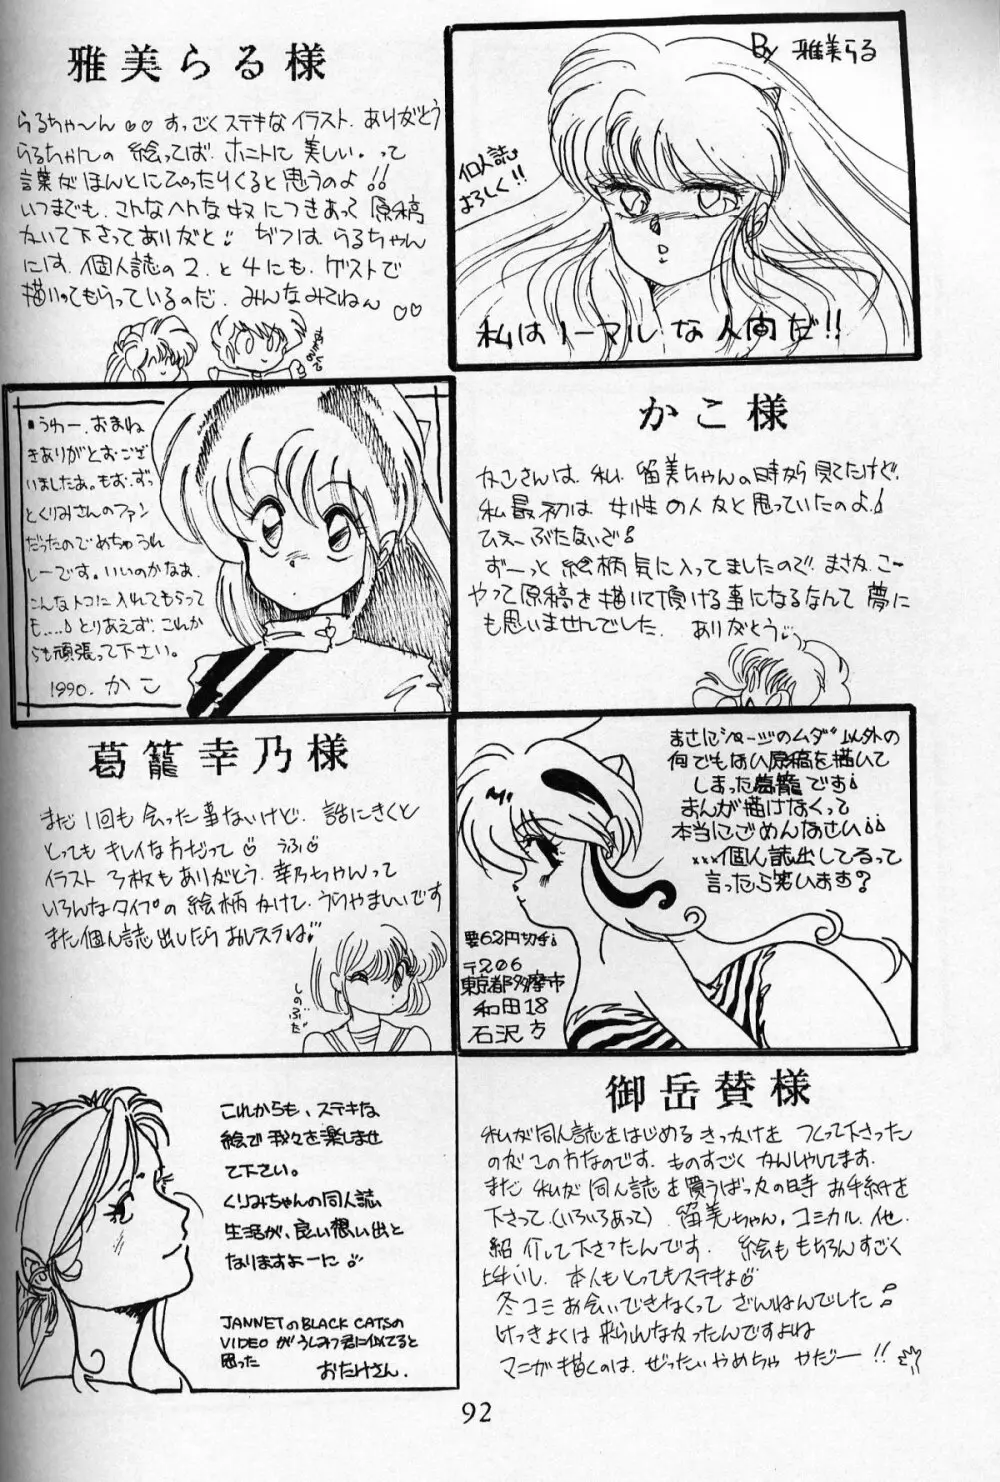 雅美らる様
らるちゃ〜ん♡♡ すっごくステキなイラスト、ありがとう
らるちゃんの 絵ってば、ホントに 美しい。って
言葉がほんとにぴったりくると思うのよ!!
いつまでも、こんなへんな奴につきあって 原稿
かいて下さってありがと♪ じつは、らるちゃん
には、個人誌の2、と4にも、ゲストで
描いてもらっているのだ、みんなみてねん ♡♡
By 雅美らる
個人誌
よろしく!!
私はノーマルな人間だ!!
かこ様
かこさんは、私、留美ちゃんの時から見てたけど、
私最初は女性の人だと思っていたのよ♪
ひえーぶたないで!
ずーっと 絵柄気に入ってましたので、まさか、こー
やって原稿を描いて頂ける事になるなんて 夢に
も思いませんでした。 ありがとう♡
・うわー、おまね
きありがとおござ
いましたあ。もお、ずっ
とくりみさんのファン
だったのでめちゃうれ
しーです。いいのかなあ、
こんなトコに入れてもらって
も……♪とりあえず、これか
らも頑張って下さい。
1990. かこ
葛籠幸乃様
まだ1回も会った事ないけど、話にきくと
とってもキレイな方だって♡ うふ♡
イラスト 3枚もありがとう、幸乃ちゃんって
いろんなタイプの絵柄かけて、うらやましいです
また個人誌出したらおしえてね♡
しのぶだ
まさにページのムダ以外の
何でもない原稿を描いて
しまった葛籠です♪
まんが描けなくって
本当にごめんなさい♪♪
×××個人誌出してるって
言ったら笑います?
要62円切手♪
〒206
東京都多摩市
和田18
石沢方
御岳賛様
私が同人誌をはじめるきっかけを つくって下さった
のがこの方なのです。ものすごく かんしゃしてます。
まだ 私が 同人誌を買うばっかの時 お手紙を
下さって、(いろいろあって)、留美ちゃん、コミカル、他、
紹介して下さったんです。 絵ももちろんすごく
上手いし、本人もとってもステキよ♡
冬コミ お会いできなくって ざんねんでした!
けっきょくは来られなかったんですよね
マンガ描くのは、ぜったいやめちゃ やだー!!
これからも、ステキな
絵で我々を楽しませ
て下さい。
くりみちゃんの同人誌
生活が、良い想い出と
なりますよーに♪
JANNETのBLACK CATSの
VIDEOがうしみつ君に似てると
思った
おたけさん.
92